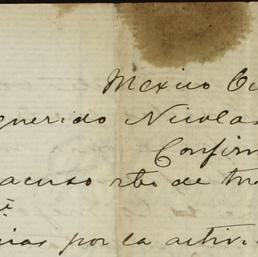 Mexico Oc
querido Nicolas
Confirm
acuso rbo de tu
por la activi